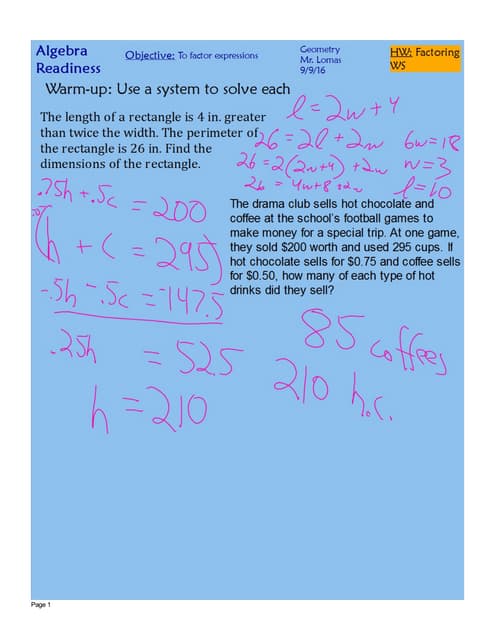 Algebra
Readiness
Objective: To factor expressions
Geometry
Mr. Lomas
9/9/16
HW: Factoring
WS
Warm-up: Use a system to solve each
The length of a rectangle is 4 in. greater
than twice the width. The perimeter of
the rectangle is 26 in. Find the
dimensions of the rectangle.
l = 2w + 4
26 = 2l + 2w
26 = 2(2w+4) + 2w
26 = 4w+8+2w
6w = 18
w = 3
l = 10
The drama club sells hot chocolate and
coffee at the school's football games to
make money for a special trip. At one game,
they sold $200 worth and used 295 cups. If
hot chocolate sells for $0.75 and coffee sells
for $0.50, how many of each type of hot
drinks did they sell?
.75h + .5c = 200
(h + c = 295)
-.5h - .5c = -147.5
.25h = 52.5
h = 210
85 coffees
210 h.c.
Page 1